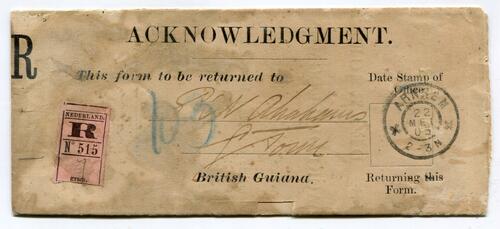 ACKNOWLEDGMENT.
R
This form to be returned to
Date Stamp of
Office
NEDERLAND.
R
No 515
Abrahams
G Town
British Guiana.
ARNHEM
22
MEI
05
2-3N
Returning this
Form.